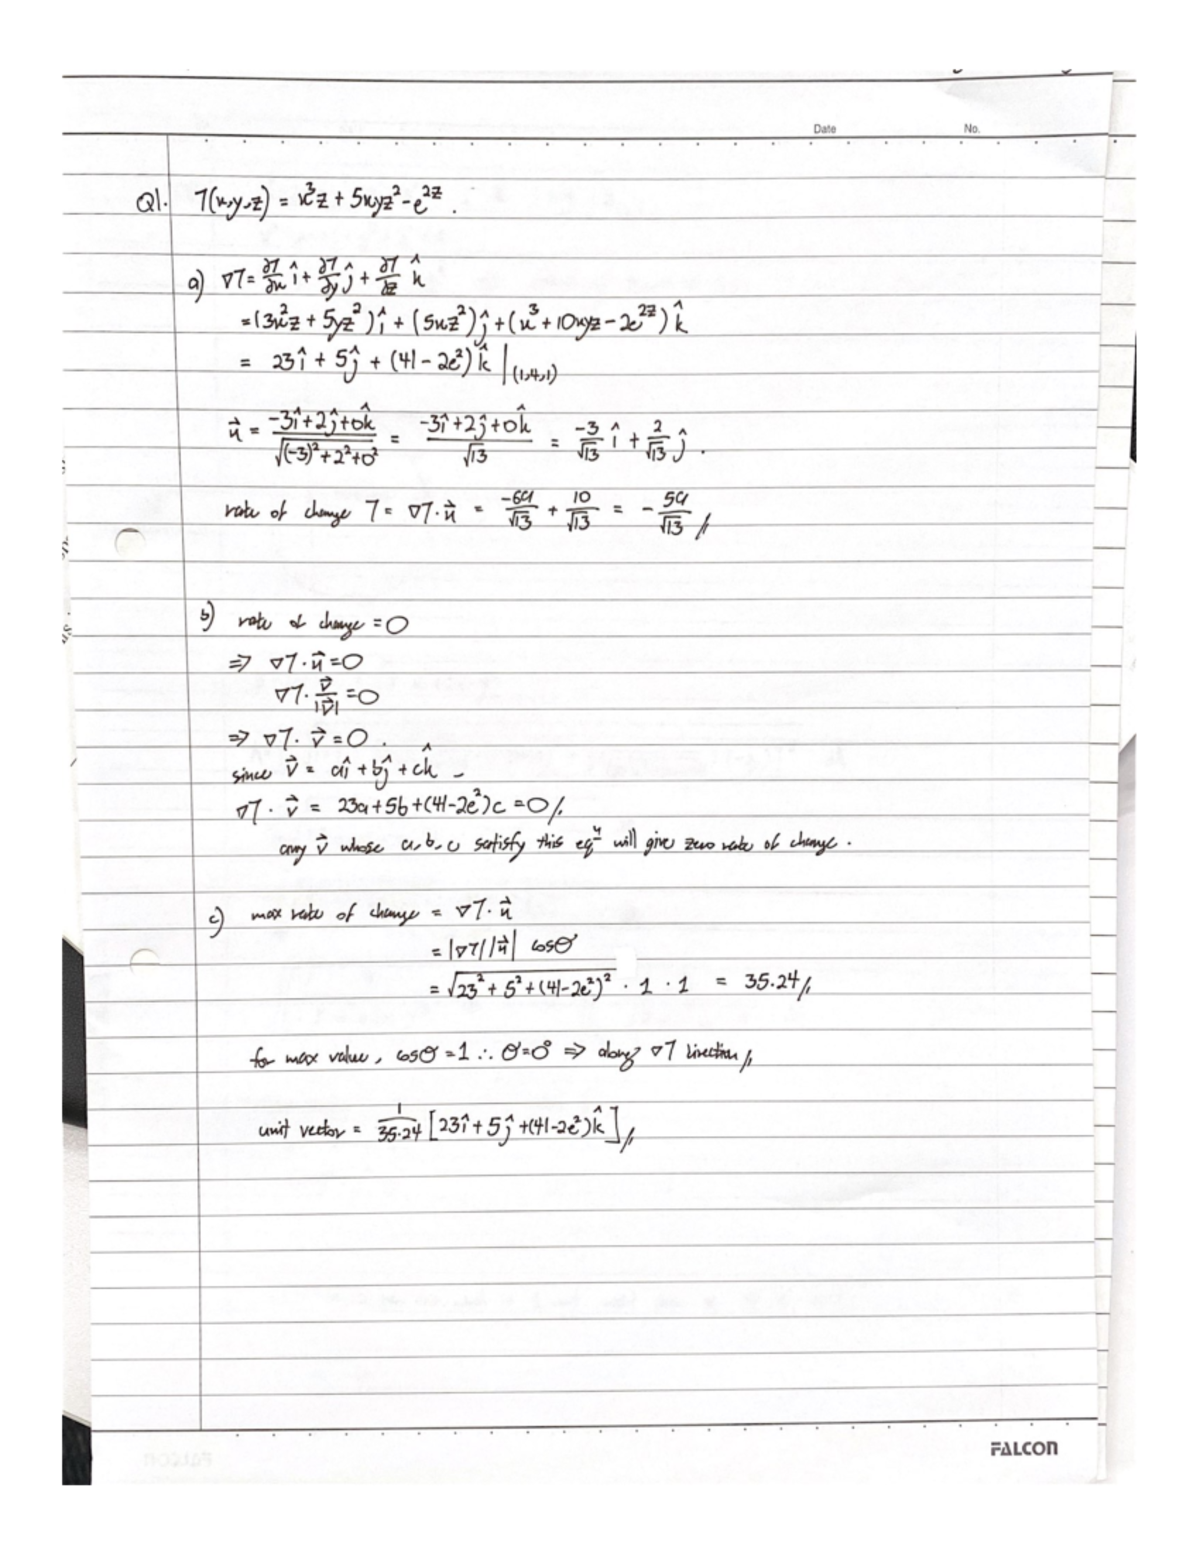 Date No.
Q1. T(x,y,z) = x³z + 5xyz² - e²ᶻ .
a) ∇T = ∂T/∂x î + ∂T/∂y ĵ + ∂T/∂z k̂
= (3x²z + 5yz²) î + (5xz²) ĵ + (x³ + 10xyz - 2e²ᶻ) k̂
= 23î + 5ĵ + (41 - 2e²) k̂ |(1,4,1)
u⃗ = (-3î + 2ĵ + 0k̂)/√((-3)² + 2² + 0²) = (-3î + 2ĵ + 0k̂)/√13 = -3/√13 î + 2/√13 ĵ .
rate of change T = ∇T · u⃗ = -69/√13 + 10/√13 = - 59/√13 //
b) rate of change = 0
⇒ ∇T · u⃗ = 0
∇T · v⃗/|v⃗| = 0
⇒ ∇T · v⃗ = 0 .
since v⃗ = aî + bĵ + ck̂
∇T · v⃗ = 23a + 5b + (41 - 2e²)c = 0 //
any v⃗ whose a, b, c satisfy this eqⁿ will give zero rate of change .
c) max rate of change = ∇T · u⃗
= |∇T| |u⃗| cosθ
= √(23² + 5² + (41 - 2e²)²) · 1 · 1 = 35.24 //
for max value, cosθ = 1 ∴ θ = 0° ⇒ along ∇T direction //
unit vector = 1/35.24 [23î + 5ĵ + (41 - 2e²) k̂] //
FALCON